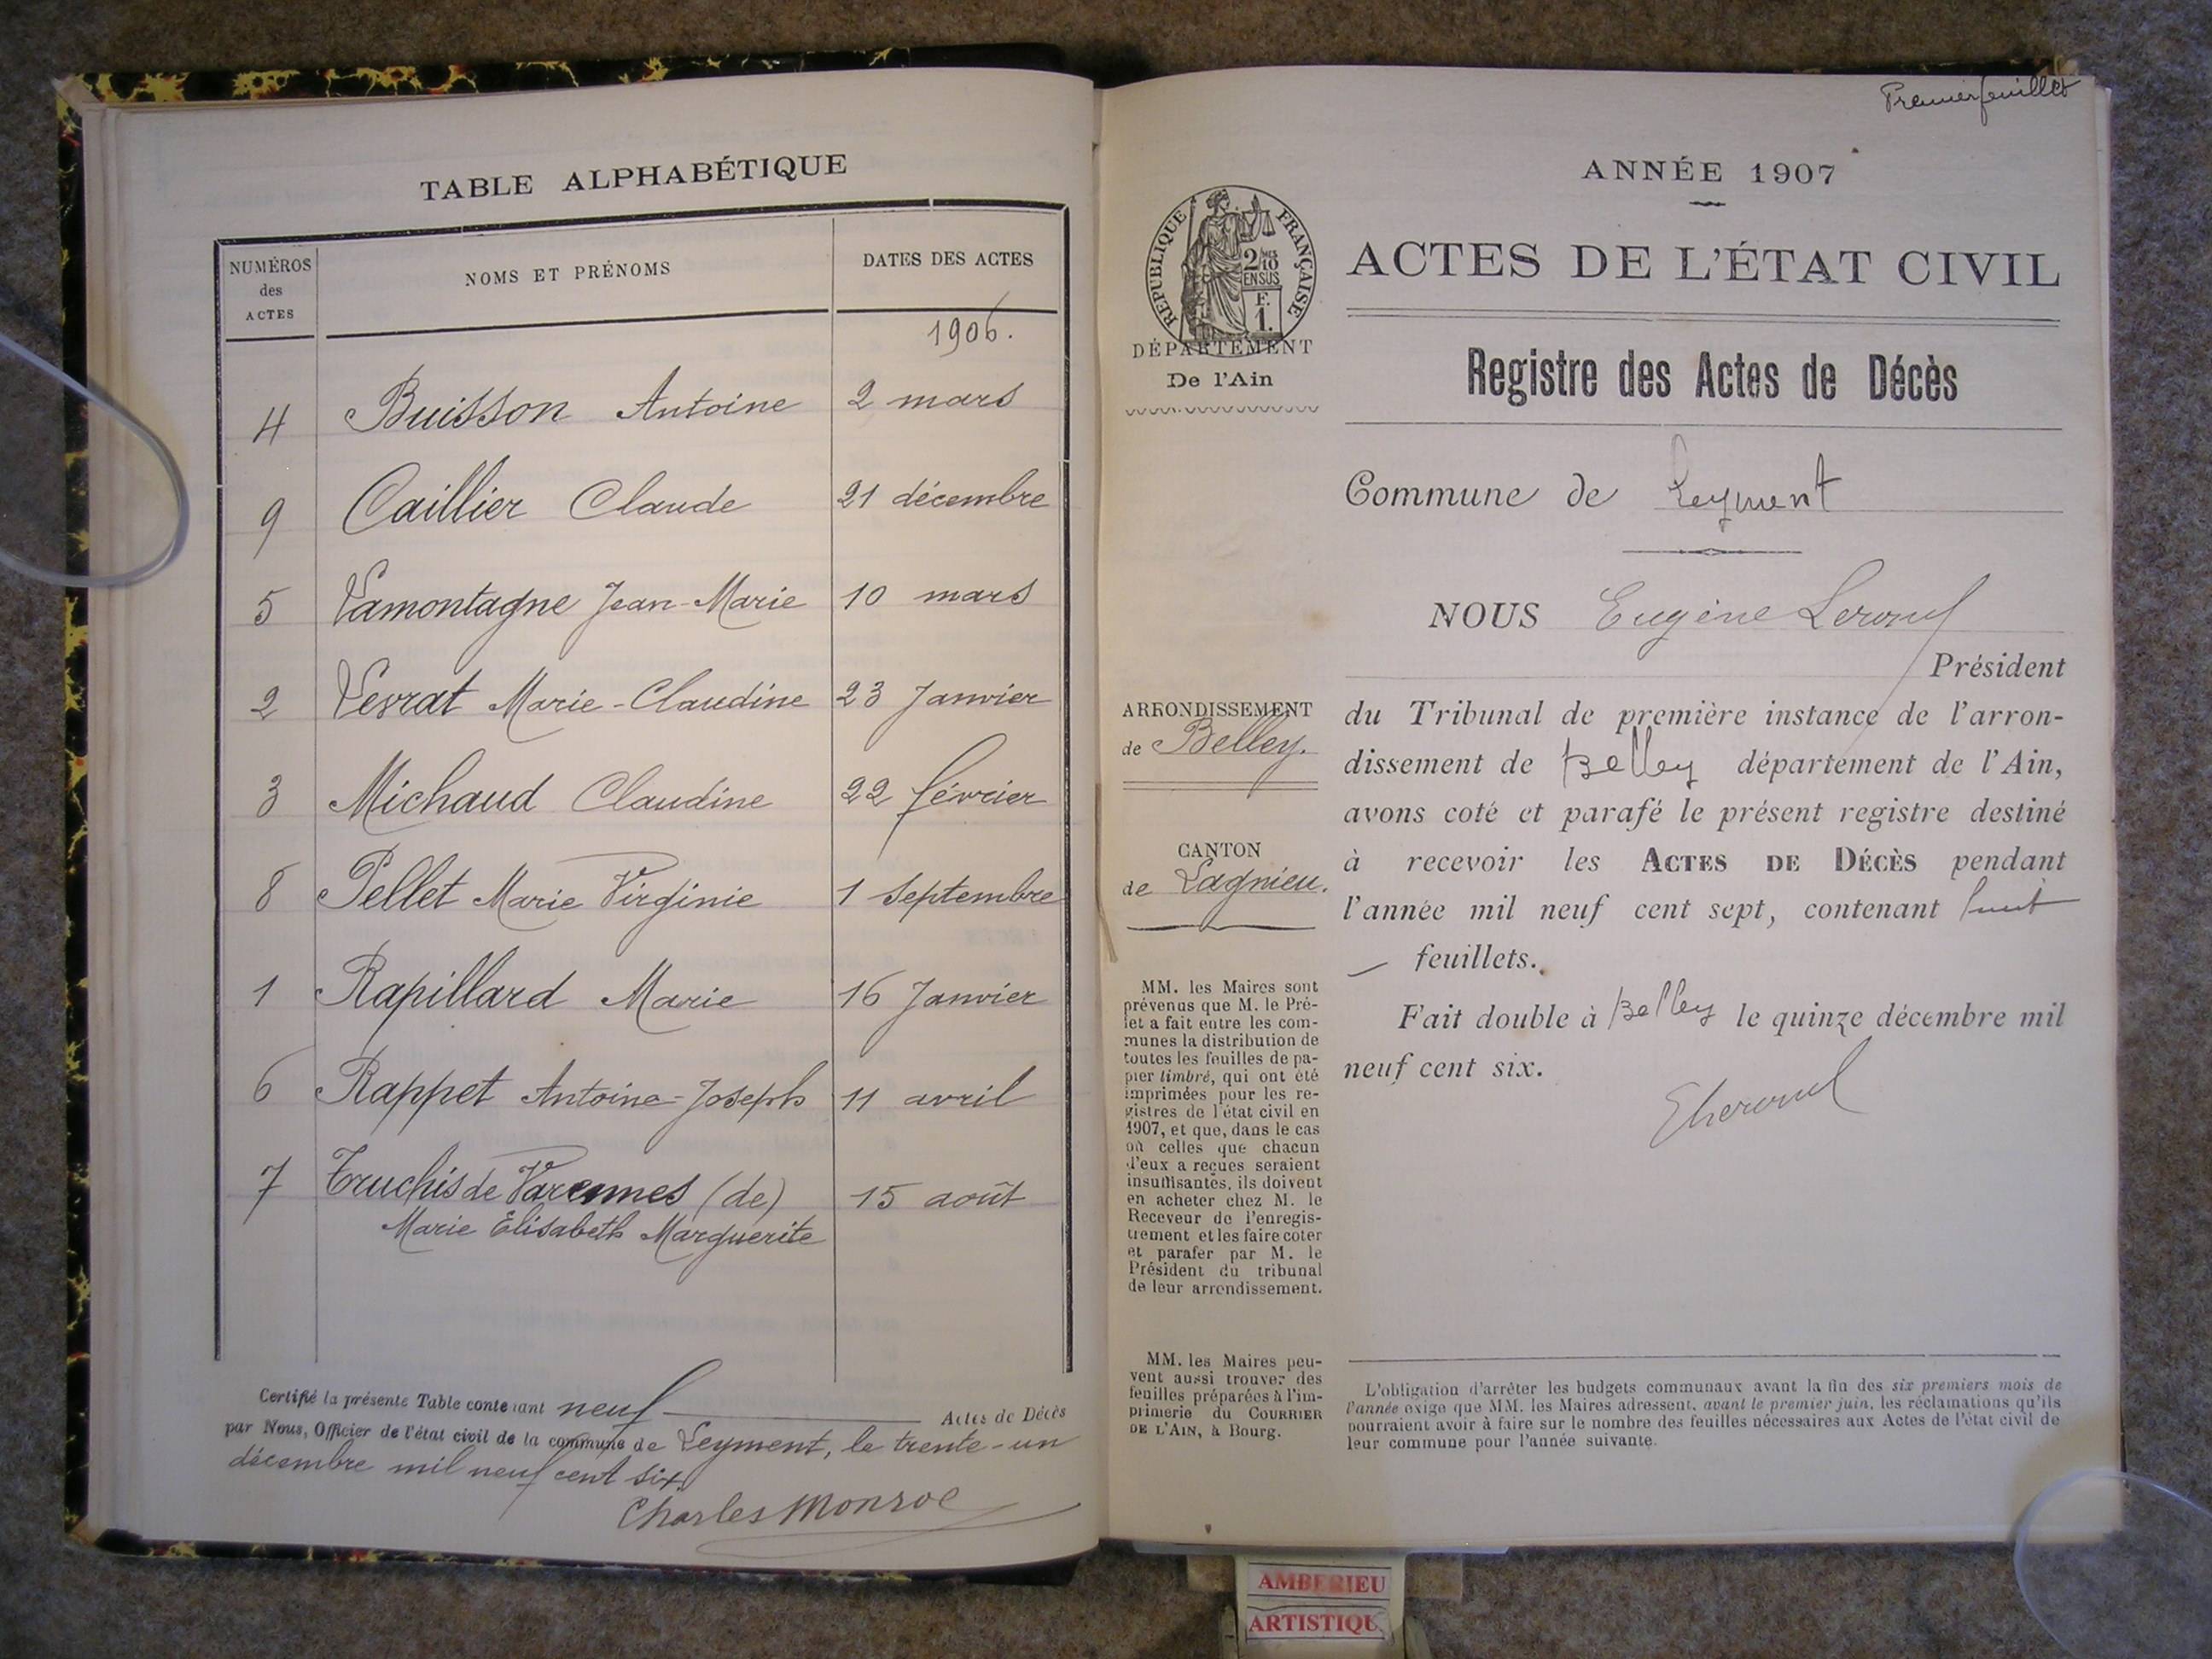 TABLE ALPHABÉTIQUE
NUMÉROS des ACTES
NOMS ET PRÉNOMS
DATES DES ACTES
1906.
4 Buisson Antoine 2 mars
9 Caillier Claude 21 décembre
5 Lamontagne Jean-Marie 10 mars
2 Levrat Marie-Claudine 23 Janvier
3 Michaud Claudine 22 février
8 Pellet Marie Virginie 1 Septembre
1 Rapillard Marie 16 Janvier
6 Rappet Antoine-Joseph 11 avril
7 Truchis de Varennes (de) 15 août
Marie Élisabeth Marguerite
Certifié la présente Table contenant neuf Actes de Décès
par Nous, Officier de l'état civil de la commune de Leyment, le trente-un
décembre mil neuf cent six.
Charles Monroe
Premier feuillet
ANNÉE 1907
RÉPUBLIQUE FRANÇAISE
2/10 EN SUS
F. 1.
DÉPARTEMENT
De l'Ain
ACTES DE L'ÉTAT CIVIL
Registre des Actes de Décès
Commune de Leyment
NOUS Eugène
Président
du Tribunal de première instance de l'arron-
dissement de Belley département de l'Ain,
avons coté et parafé le présent registre destiné
à recevoir les ACTES DE DÉCÈS pendant
l'année mil neuf cent sept, contenant huit
feuillets.
Fait double à Belley le quinze décembre mil
neuf cent six.
ARRONDISSEMENT
de Belley.
CANTON
de Lagnieu.
MM. les Maires sont
prévenus que M. le Pré-
fet a fait entre les com-
munes la distribution de
toutes les feuilles de pa-
pier timbré, qui ont été
imprimées pour les re-
gistres de l'état civil en
1907, et que, dans le cas
où celles que chacun
d'eux a reçues seraient
insuffisantes, ils doivent
en acheter chez M. le
Receveur de l'enregis-
trement et les faire coter
et parafer par M. le
Président du tribunal
de leur arrondissement.
MM. les Maires peu-
vent aussi trouver des
feuilles préparées à l'im-
primerie du COURRIER
DE L'AIN, à Bourg.
L'obligation d'arrêter les budgets communaux avant la fin des six premiers mois de
l'année exige que MM. les Maires adressent, avant le premier juin, les réclamations qu'ils
pourraient avoir à faire sur le nombre des feuilles nécessaires aux Actes de l'état civil de
leur commune pour l'année suivante.
AMBERIEU
ARTISTIQU